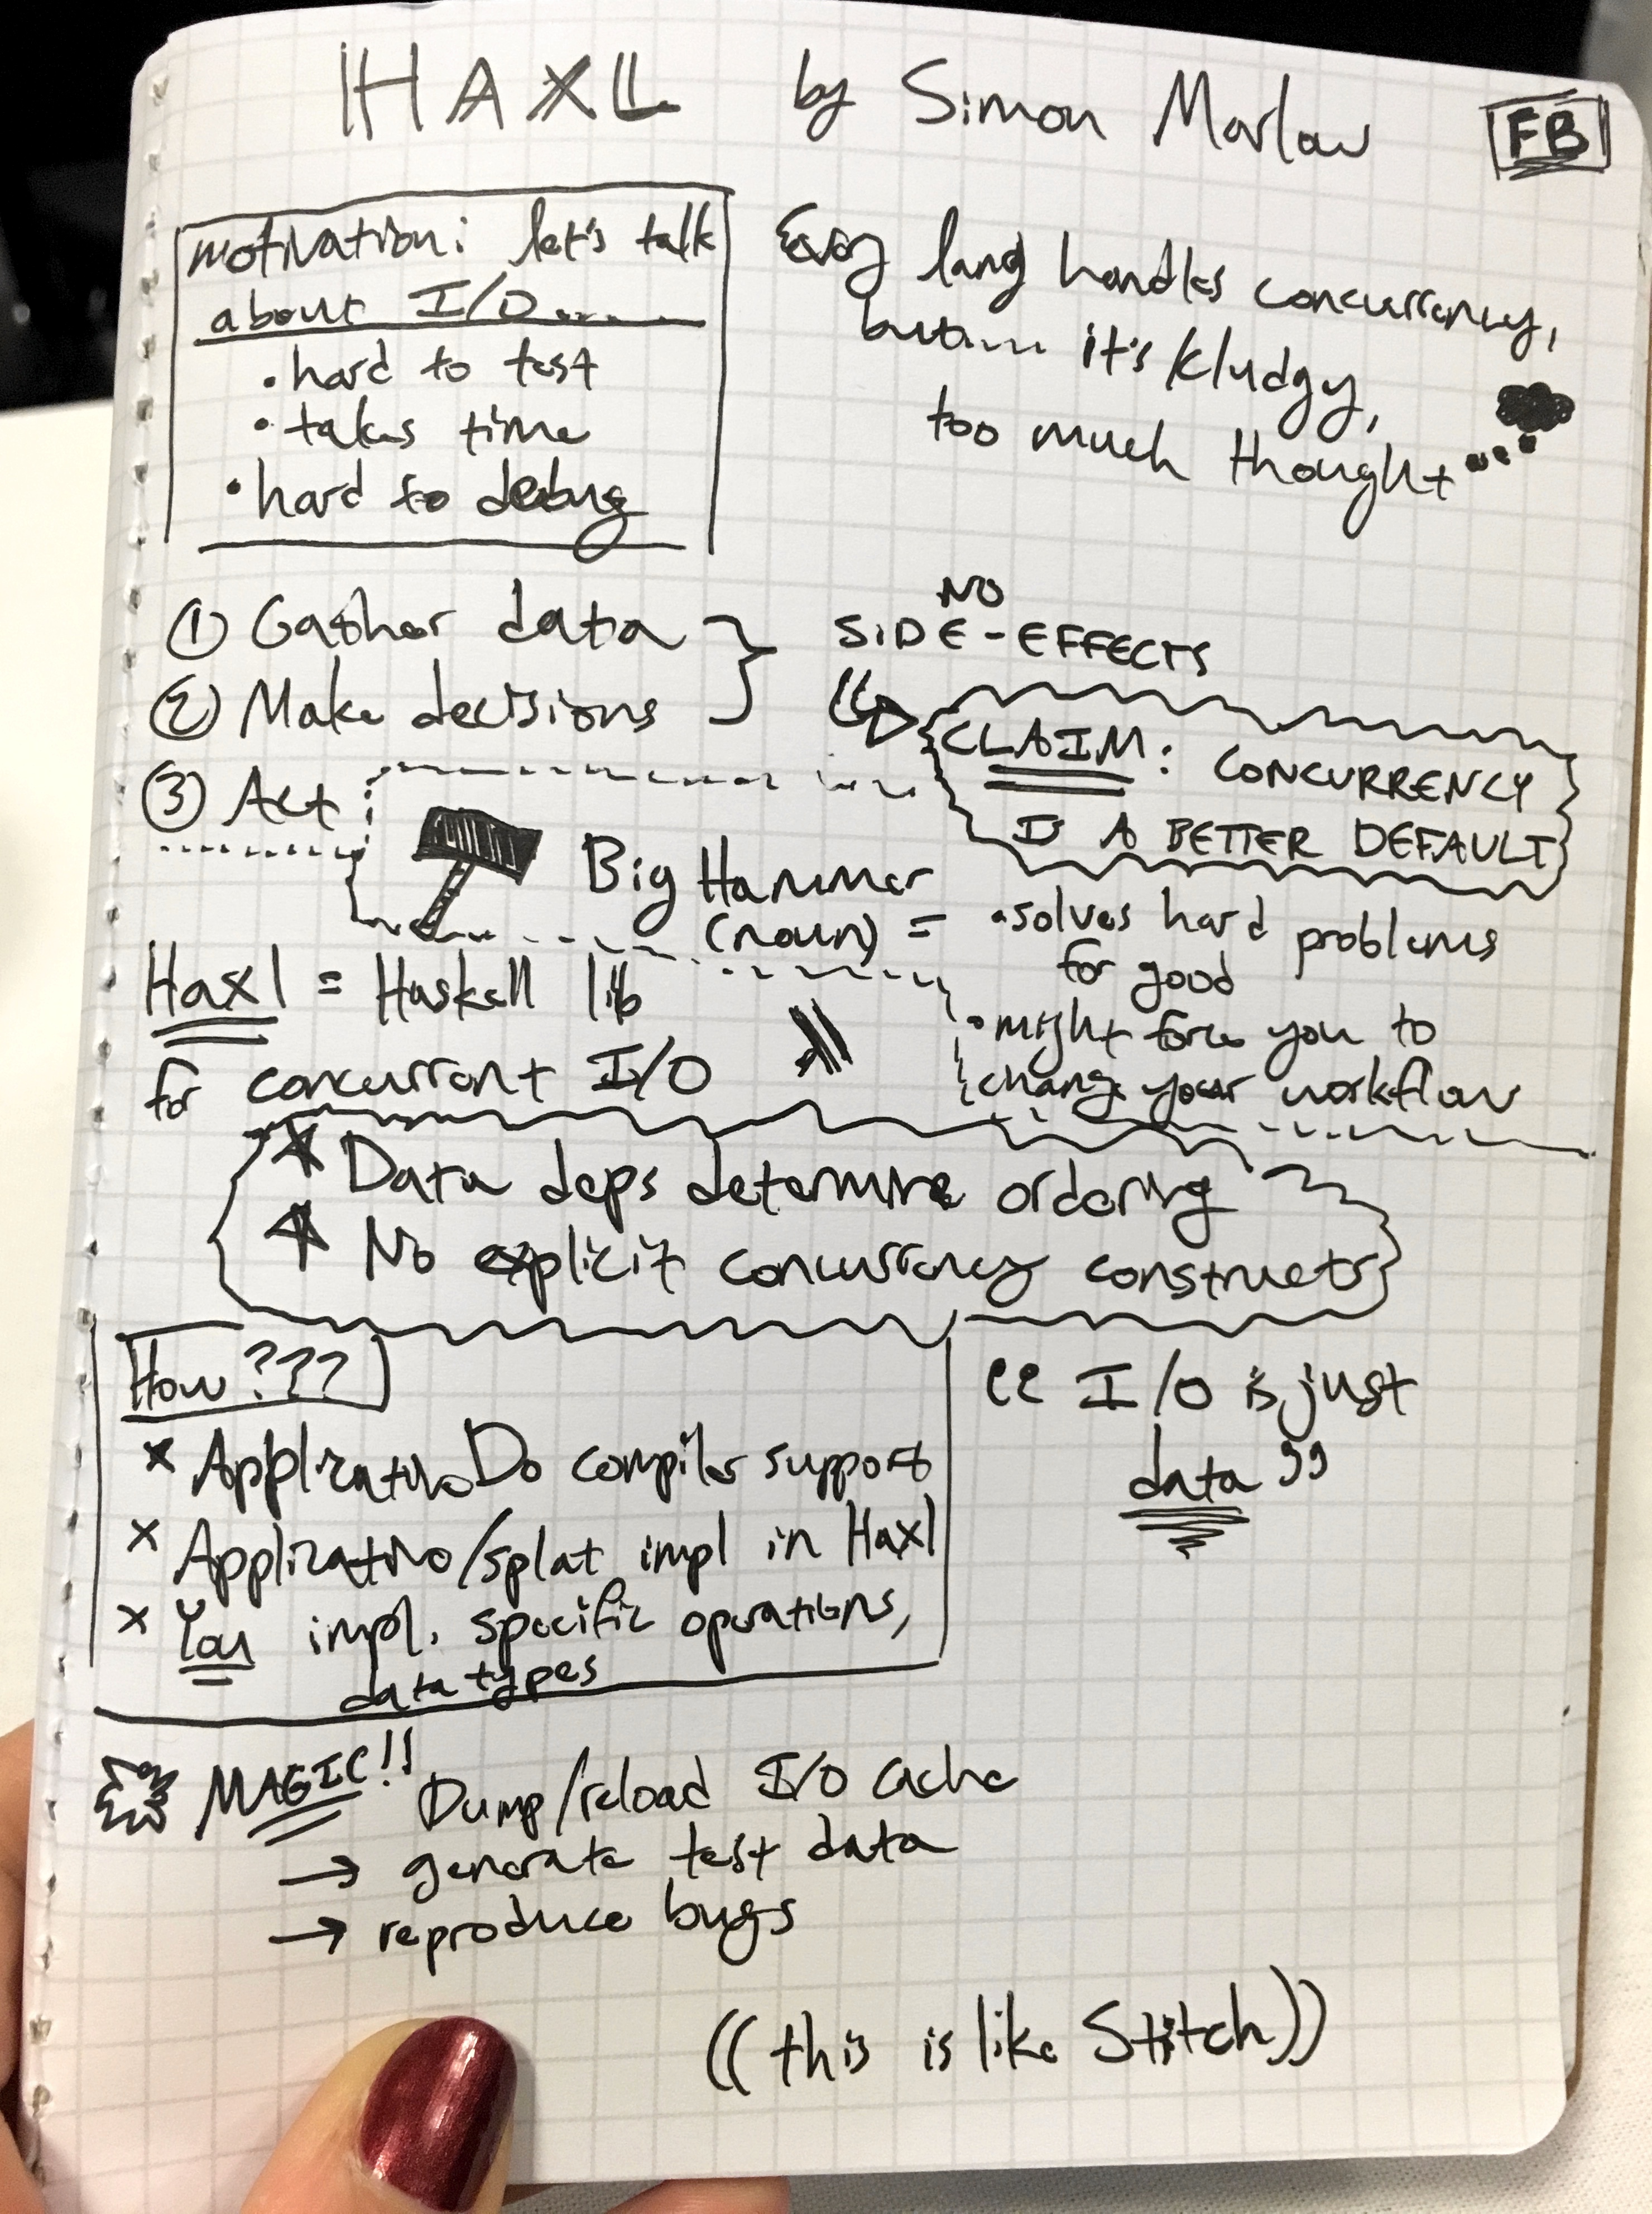 HAXL by Simon Marlow FB
motivation: let's talk
about I/O....
• hard to test
• takes time
• hard to debug
Every lang handles concurrency,
but.... it's kludgy,
too much thought
① Gather data
② Make decisions
③ Act
NO
SIDE-EFFECTS
CLAIM: CONCURRENCY
IS A BETTER DEFAULT
Big Hammer
(noun) =
• solves hard problems
for good
• might force you to
change your workflow
Haxl = Haskell lib
for concurrent I/O
* Data deps determine ordering
* No explicit concurrency constructs
How???
x ApplicativeDo compiler support
x Applicative/splat impl in Haxl
x You impl. specific operations,
data types
“I/O is just
data”
MAGIC!! Dump/reload I/O cache
→ generate test data
→ reproduce bugs
((this is like Stitch))